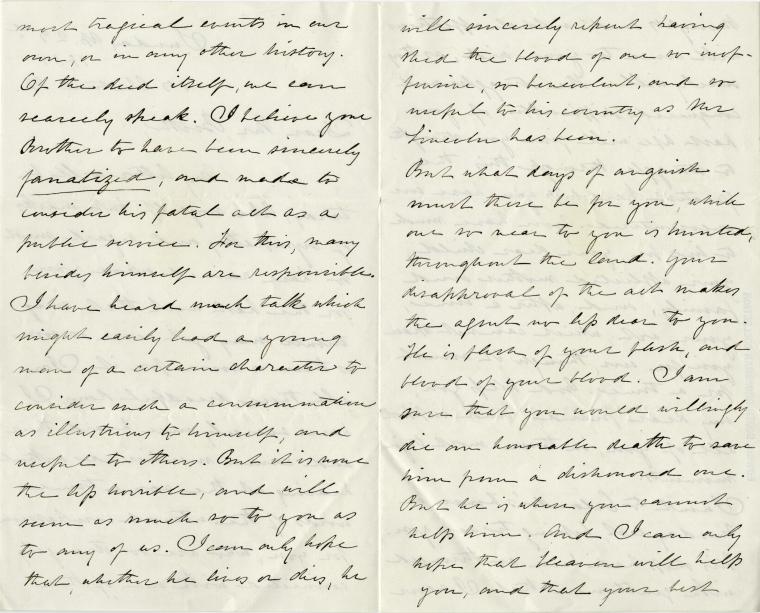 most tragical events in our
own, or in any other history.
Of the deed itself, we can
scarcely speak. I believe your
Brother to have been sincerely
fanatized, and made to
consider his fatal act as a
public service. For this, many
besides himself are responsible.
I have heard much talk which
might easily lead a young
man of a certain character to
consider such a consummation
as illustrious to himself, and
useful to others. But it is none
the less horrible, and will
seem as much so to you as
to any of us. I can only hope
that, whether he lives or dies, he
will sincerely repent having
shed the blood of one so inof-
fensive, so benevolent, and so
useful to his country as Mr
Lincoln has been.
But what days of anguish
must these be for you, while
one so near to you is hunted,
throughout the land. Your
disapproval of the act makes
the agent no less dear to you.
He is flesh of your flesh, and
blood of your blood. I am
sure that you would willingly
die an honorable death to save
him from a dishonored one.
But he is where you cannot
help him. And I can only
hope that Heaven will help
you, and that your best